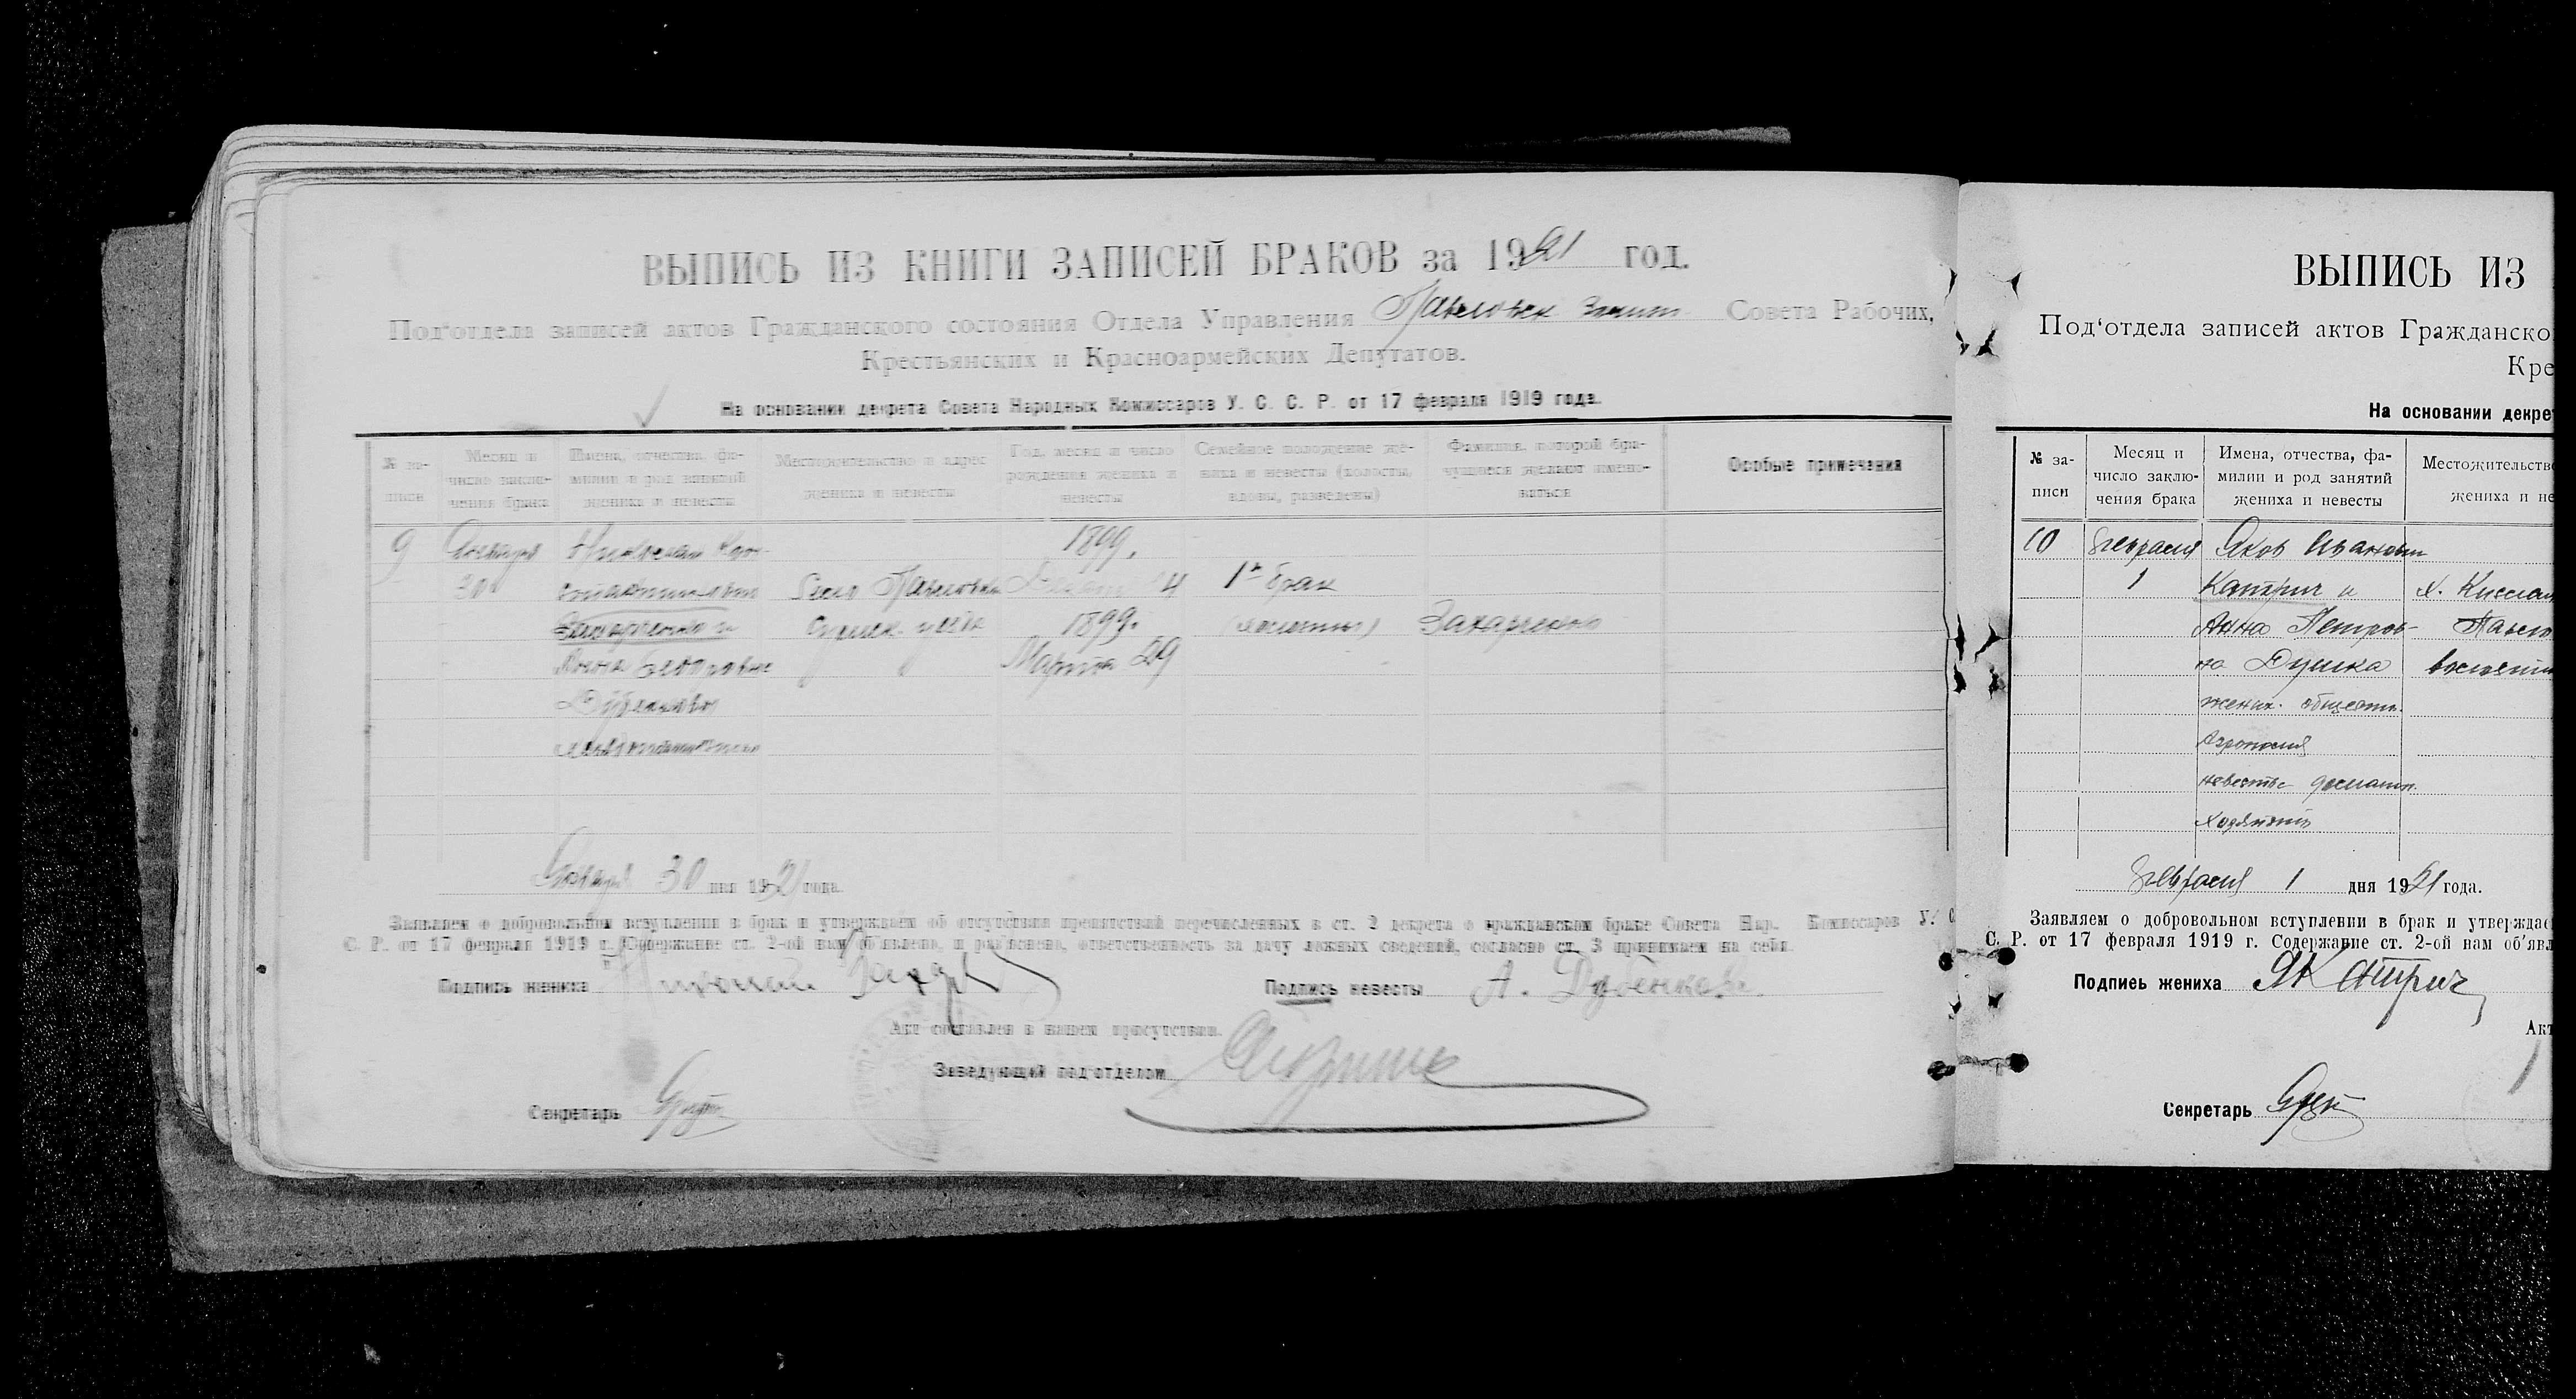 ВЫПИСЬ ИЗ КНИГИ ЗАПИСЕЙ БРАКОВ за 1921 год.
Под'отдела записей актов Гражданского состояния Отдела Управления Павловск Совета Рабочих,
Крестьянских и Красноармейских Депутатов.
На основании декрета Совета Народных Комиссаров У. С. С. Р. от 17 февраля 1919 года.
№ за-
писи
Месяц и
число заклю-
чения брака
Имена, отчества, фа-
милии и род занятий
жениха и невесты
Местожительство и адрес
жениха и невесты
Год, месяц и число
рождения жениха и
невесты
Семейное положение же-
ниха и невесты (холосты,
вдовы, разведены)
Фамилия, которой бра-
чущиеся желают имено-
ваться
Особые примечания
9 Января 1899.
30 Село Павловка 4 1й брак
Захарченко и Сумск. уезда 1899. (холосты) Захарченко
Анна Федоровна Марта 29
Дубенкова
Января 30 дня 1921 года.
Заявляем о добровольном вступлении в брак и утверждаем об отсутствии препятствий перечисленных в ст. 2 декрета о гражданском браке Совета Нар. Комиссаров У. С.
С. Р. от 17 февраля 1919 г. Содержание ст. 2-ой нам об'явлено, и раз'яснено, ответственность за дачу ложных сведений, согласно ст. 3 принимаем на себя.
Подпись жениха
Подпись невесты А. Дубенкова
Акт составлен в нашем присутствии.
Заведующий под'отделом
Секретарь
ВЫПИСЬ ИЗ
Под'отдела записей актов Гражданско
Кре
На основании декре
№ за-
писи
Месяц и
число заклю-
чения брака
Имена, отчества, фа-
милии и род занятий
жениха и невесты
Местожительств
жениха и не
10 Февраля Яков Иванович
1 Катрич и х.
Анна Петров-
на Душка
жених. обществ.
Агроном
невеста домашн.
Хозяйство
Февраля 1 дня 1921 года.
Заявляем о добровольном вступлении в брак и утверждае
С. Р. от 17 февраля 1919 г. Содержание ст. 2-ой нам об'явл
Подпись жениха ЯКатрич
Акт
Секретарь